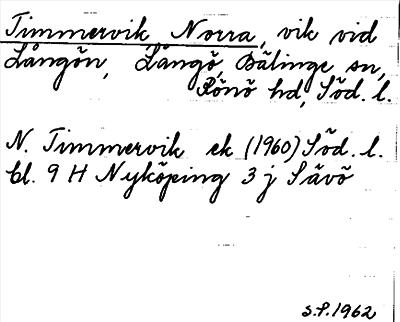 Timmervik, Norra, vik vid
Långön, Långö, Bälinge sn,
Rönö hd, Söd. l.
N. Timmervik ek (1960) Söd. l.
bl. 9 H Nyköping 3 j Sävö
S.P. 1962